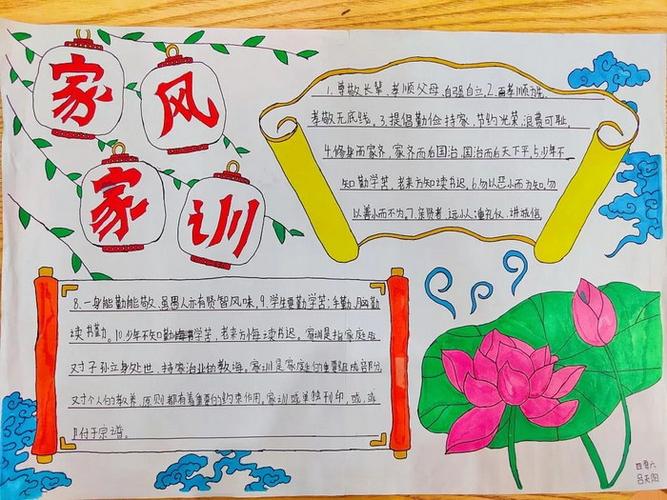 家风
家训
1.尊敬长辈,孝顺父母,自强自立,2.百孝顺为先,
孝敬无底线,3.提倡勤俭持家,节约光荣,浪费可耻。
4.修身而家齐,家齐而后国治,国治而后天下平,5.少年不
知勤学苦,老来方知读书迟,6.勿以恶小而为知,勿
以善小而不为,7.亲贤者,远小人,重礼仪,讲诚信
8.一身能勤能敬,虽愚人亦有贤智风味,9.学生要勤学苦:手勤,脑勤
读书勤。10.少年不知勤学苦,老来方悔读书迟。家训是指家庭
对子孙立身处世、持家治业的教诲。家训是家庭的重要组成部分,
对个人的教养、原则都有着重要的约束作用,家训或单独刊印,或
附于宗谱。
四
吕天阳